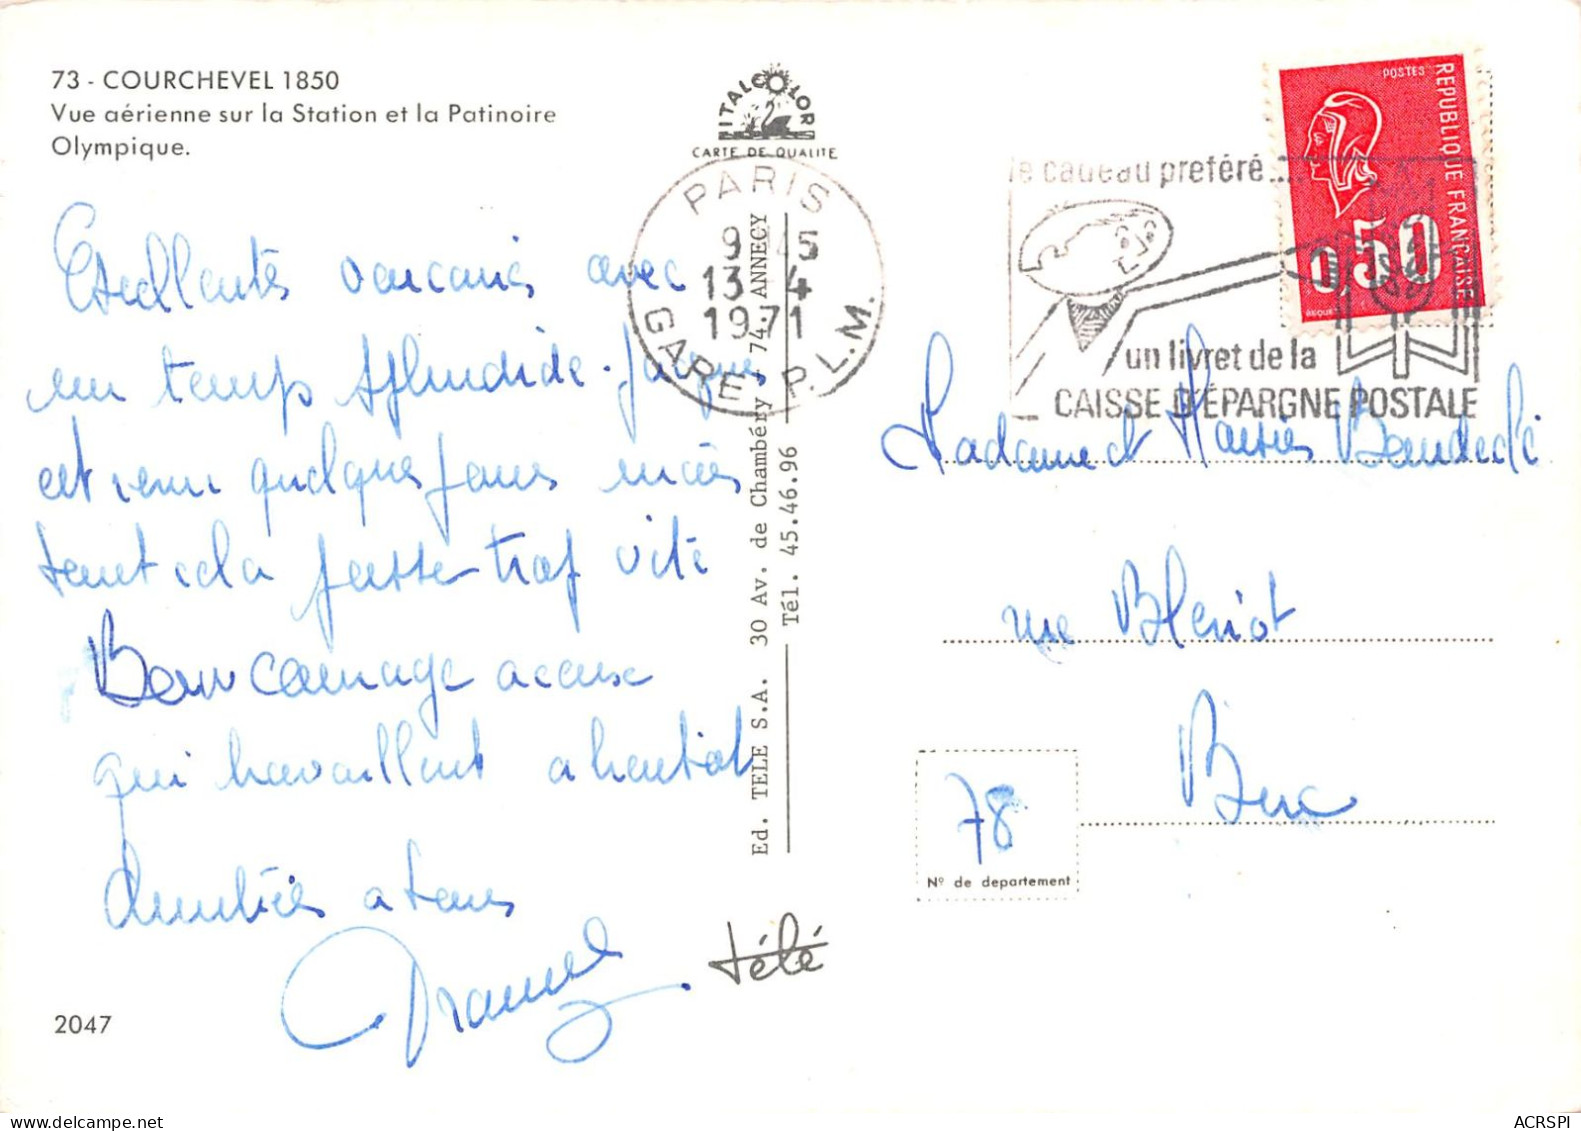 73 - COURCHEVEL 1850
Vue aérienne sur la Station et la Patinoire
Olympique.
ITALCOLOR
CARTE DE QUALITE
PARIS
9 45
13 4
1971
GARE P.L.M.
le cadeau préféré....
un livret de la
CAISSE D'ÉPARGNE POSTALE
POSTES
REPUBLIQUE FRANÇAISE
0,50
Excellentes vacances avec
un temps splendide. Jacques
est venu quelques jours mais
tout cela passe trop vite
Bon courage a ceux
qui travaillent a
Amitiés a tous
Ed. TELE S.A. 30 Av. de Chambéry 74. ANNECY
Tél. 45.46.96
Madame et
rue Bleriot
Buc
78
Nº de departement
télé
2047
ACRSPI